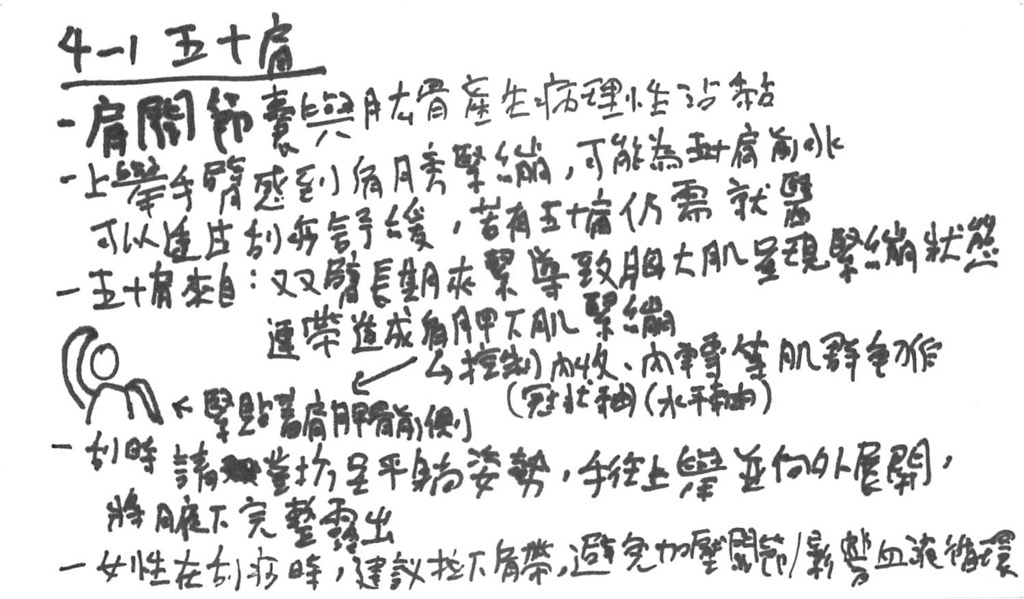 4-1 五十肩
- 肩關節囊與肱骨產生病理性沾黏
- 上舉手臂感到肩胛緊繃，可能為五十肩前兆
可以透過刮痧舒緩，若有五十肩仍需就醫
- 五十肩來自：双双臂長期夾緊導致胸大肌呈現緊繃狀態
連帶造成肩胛下肌緊繃
↳控制內收、內轉等肌群動作
(冠狀軸(水平軸)
← 緊貼著肩胛骨前側
- 刮時請當坊呈平躺姿勢，手往上舉並向外展開，
將腋下完整露出
- 女性在刮痧時，建議拉下肩帶，避免加壓關節/影響血液循環